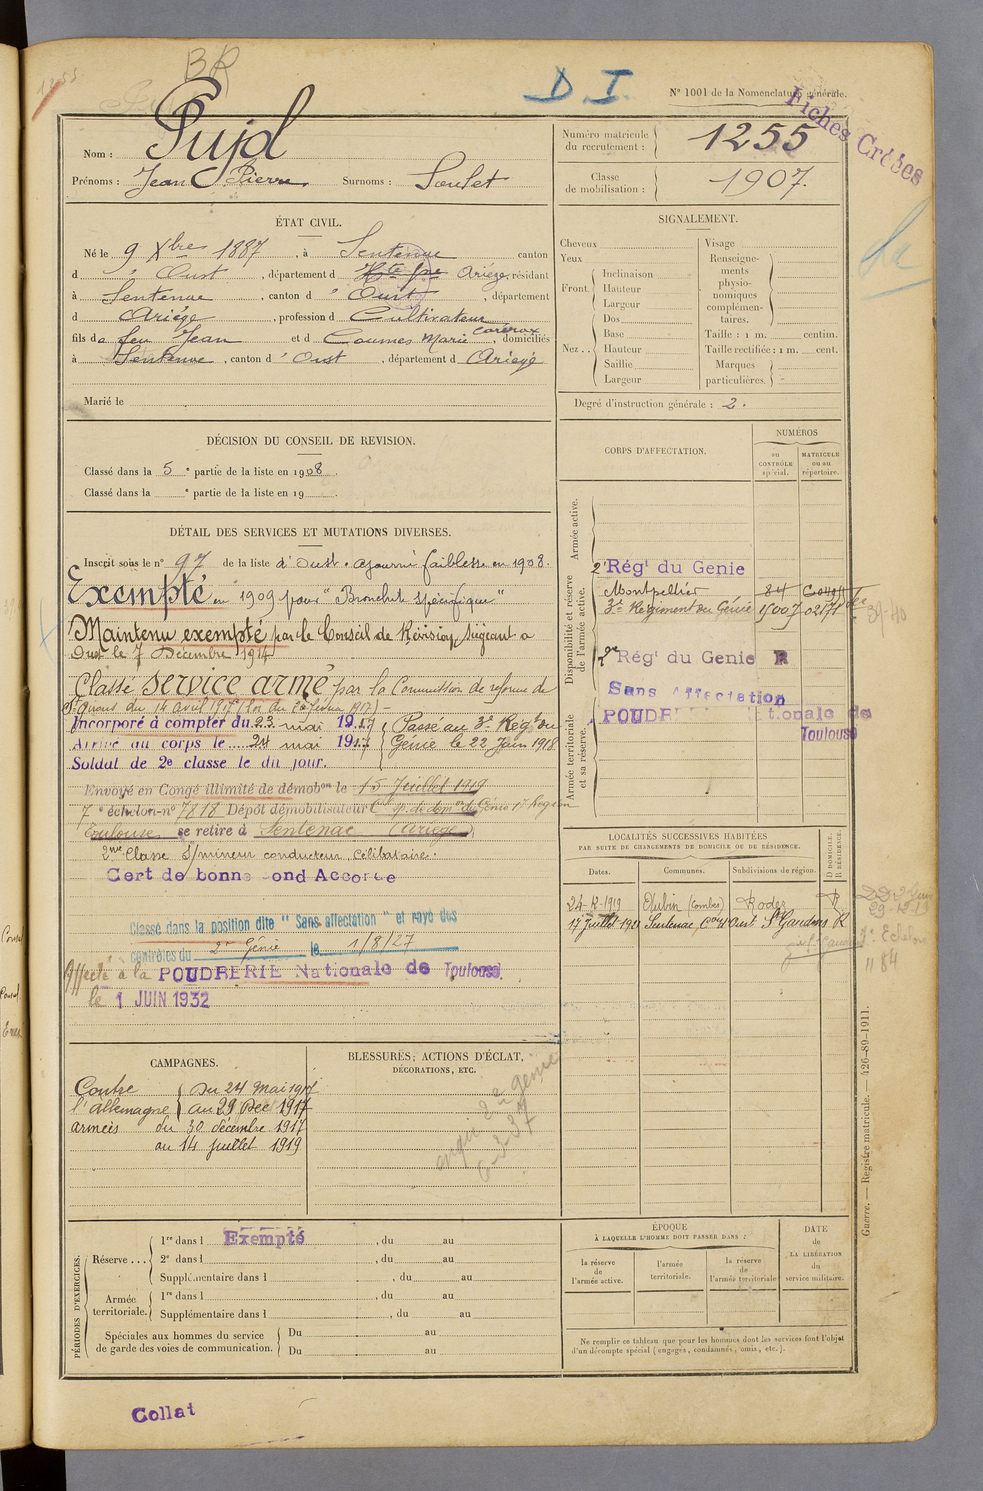 BR
D. I.
N° 1001 de la Nomenclature générale.
Fiches Créées
Nom : Pujol
Prénoms : Jean Pierre Surnoms : Soulet
Numéro matricule du recrutement : 1255
Classe de mobilisation : 1907.
ÉTAT CIVIL.
Né le 9 Xbre 1887, à Sentenac canton
d' Oust, département d Hte Gne Ariège, résidant
à Sentenac, canton d' Oust, département
d Ariège, profession d Cultivateur
fils de feu Jean et d Coumes Marie, domiciliés
à Sentenac, canton d' Oust, département d Ariège
Marié le
SIGNALEMENT.
Cheveux
Yeux
Front. Inclinaison
Hauteur
Largeur
Nez . . Dos
Base
Hauteur
Saillie
Largeur
Visage
Renseignements physionomiques complémentaires.
Taille : 1 m. centim.
Taille rectifiée : 1 m. cent.
Marques particulières.
Degré d'instruction générale : 2.
DÉCISION DU CONSEIL DE REVISION.
Classé dans la 5e partie de la liste en 1908.
Classé dans la e partie de la liste en 19
DÉTAIL DES SERVICES ET MUTATIONS DIVERSES.
Inscrit sous le n° 97 de la liste d'Oust. ajourné faiblesse en 1908.
Exempté en 1909 pour "Bronchite spécifique"
Maintenu exempté par le Conseil de Révision siégeant a
Oust le 7 Décembre 1914
Classé service armé par la Commission de réforme de
St Girons du 14 avril 1917 (loi du 20 février 1917)
Incorporé à compter du 23 mai 1917 Passé au 3e Regt du
Arrivé au corps le 24 mai 1917 Génie le 22 Juin 1918
Soldat de 2e classe le dit jour.
Envoyé en Congé illimité de démobon le 15 Juillet 1919
7e échelon-n° 7818 Dépôt démobilisateur
Toulouse se retire à Sentenac (Ariège)
2me Classe S/mineur conducteur. célibataire.
Cert de bonne ond Accorde
Classé dans la position dite "Sans affectation" et rayé des
contrôles du 2e Génie le 1/8/27
Affecté à la POUDRERIE Nationale de Toulouse.
le 1 JUIN 1932
CORPS D'AFFECTATION.
NUMÉROS
au CONTRÔLE spécial.
MATRICULE ou au répertoire.
Armée active.
Disponibilité et réserve de l'armée active.
Armée territoriale et sa réserve.
2e Régt du Genie
Montpellier
3e Régiment du Génie 15007
2e Régt du Genie R
Sans Affectation
POUDRERIE Nationale de
Toulouse
LOCALITÉS SUCCESSIVES HABITÉES
PAR SUITE DE CHANGEMENTS DE DOMICILE OU DE RÉSIDENCE.
Dates. Communes. Subdivisions de région. D DOMICILE. R RÉSIDENCE.
24-12-1919 Aubin (Combes) Rodez R
Sentenac Con d'Oust St Gaudens R
CAMPAGNES.
Contre l'Allemagne Du 24 Mai 1917
au 29 Dec 1917
armées du 30 décembre 1917
au 14 juillet 1919
BLESSURES; ACTIONS D'ÉCLAT,
DÉCORATIONS, ETC.
2e génie
6-3-37
PÉRIODES D'EXERCICES.
Réserve . . . 1re dans l Exempté, du au
2e dans l , du au
Supplémentaire dans l , du au
Armée territoriale. 1re dans l , du au
Supplémentaire dans l , du au
Spéciales aux hommes du service
de garde des voies de communication. Du au
Du au
ÉPOQUE
À LAQUELLE L'HOMME DOIT PASSER DANS :
la réserve de l'armée active.
l'armée territoriale.
la réserve de l'armée territoriale
DATE de LA LIBÉRATION du service militaire.
Ne remplir ce tableau que pour les hommes dont les services font l'objet
d'un décompte spécial (engagés, condamnés, omis, etc.).
Guerre. — Registre matricule. — 426-89-1911.
Collat